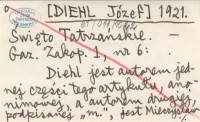 [DIEHL Józef] 1921.
Święto Tatrzańskie. –
Gaz. Zakop. 1, nr 6:
Diehl jest autorem jed-
nej części tego artykułu ano-
nimowej, a autorem drugiej,
podpisanej „m.", jest Mieczysław